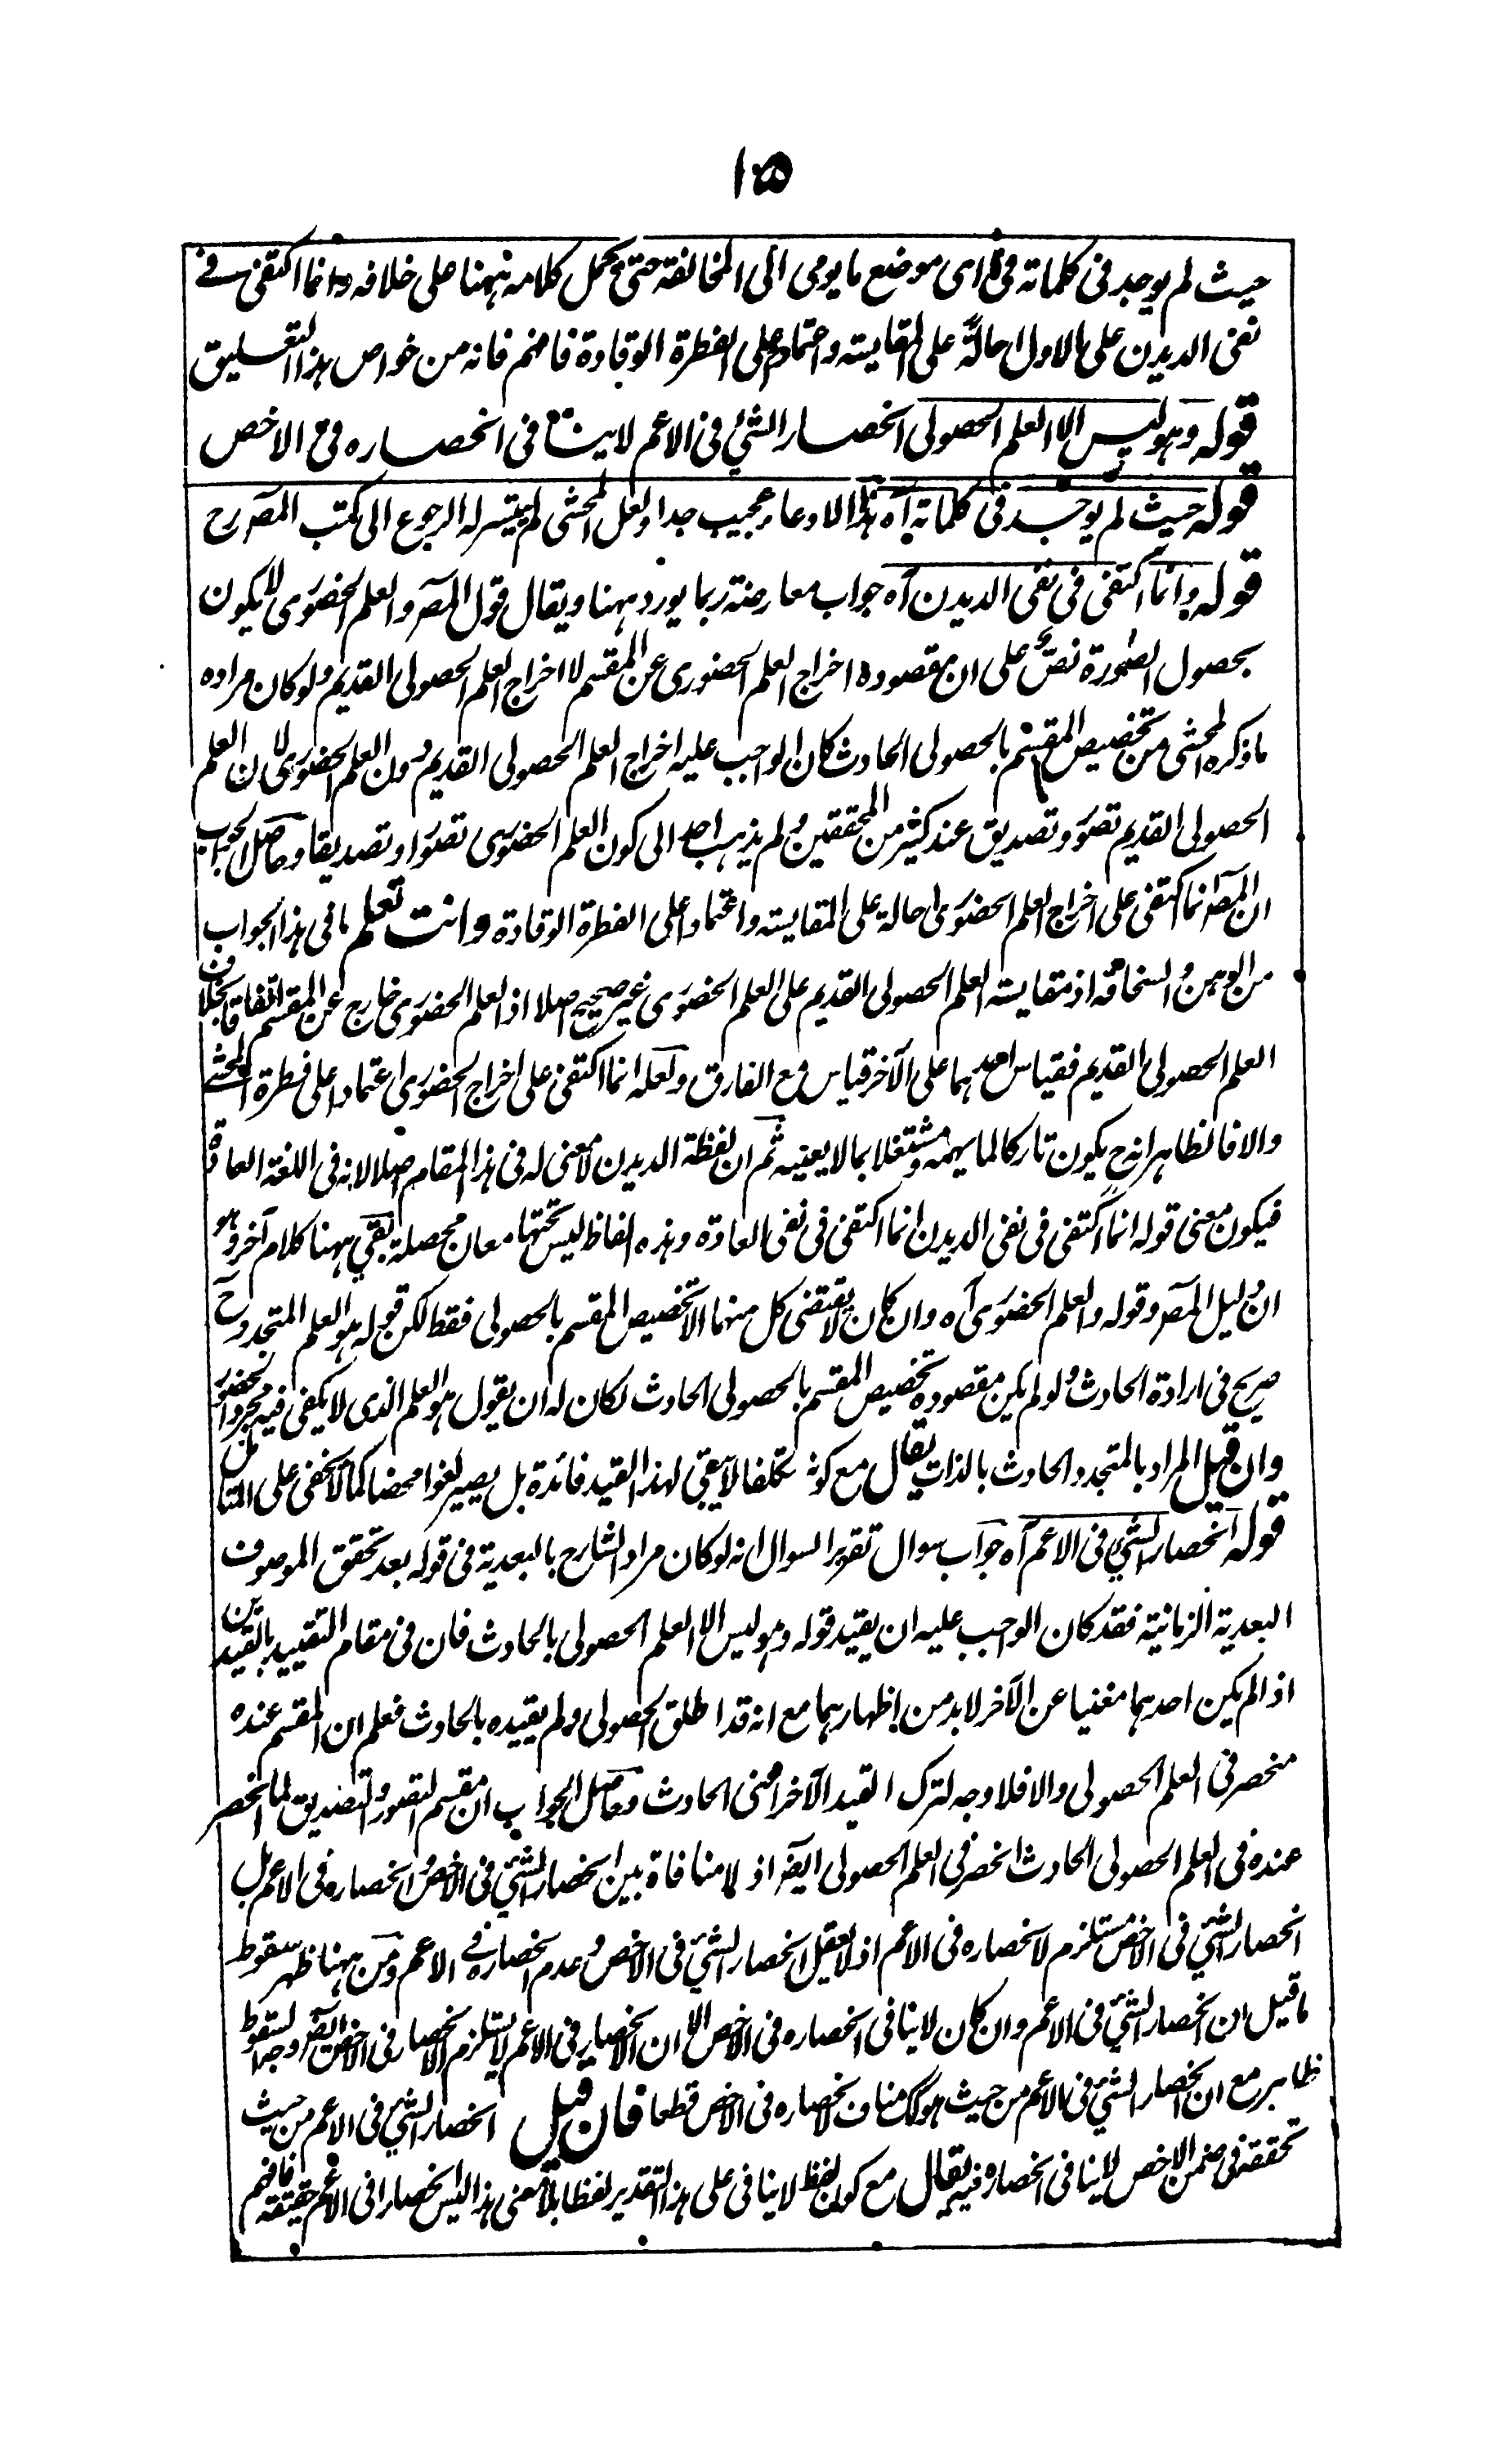 ١٥
حيث لم يوجد فى كلماته فى اى موضع ما يومى الى المخالفة حتى يحمل كلامه ههنا على خلافه وانما اكتفى فى
نفى الديدن على الاول احالة على المقايسته واعتمادا على الفطرة الوقادة فافهم فانه من خواص هذا التعليق
قوله وهو ليس الا العلم الحصولى انحصار الشئ فى الاعم لا ينافى انحصاره فى الاخص
قوله حيث لم يوجد فى كلماته آه هذا الادعاء عجيب جدا ولعل المحشى لم يتيسر له الرجوع الى كتب المصرح
قوله وانما اكتفى فى نفى الديدن آه جواب معارضة ربما يورد ههنا ويقال قول المصر والعلم الحضورى لا يكون
بحصول الصورة نص على ان مقصوده اخراج العلم الحضورى عن المقسم لا اخراج العلم الحصولى القديم ولو كان مراده
ما ذكره المحشى من تخصيص المقسم بالحصولى الحادث كان الواجب عليه اخراج العلم الحصولى القديم دون العلم الحضورى لان العلم
الحصولى القديم تصور وتصديق عند كثير من المحققين ولم يذهب احد الى كون العلم الحضورى تصورا وتصديقا وحاصل الجواب
ان المصر انما اكتفى على اخراج العلم الحضورى احالة على المقايسته واعتمادا على الفطرة الوقادة وانت تعلم ما فى هذا الجواب
من الوهن والسخافة اذ مقايسته العلم الحصولى القديم على العلم الحضورى غير صحيح اصلا اذ العلم الحضورى خارج عن المقسم اتفاقا بخلاف
العلم الحصولى القديم فقياس احدهما على الآخر قياس مع الفارق ولعله انما اكتفى على اخراج الحضورى اعتمادا على فطرة المحشى
والا فالظاهر انه ح يكون تاركا لما يهمه ومشتغلا بما لا يعنيه ثم ان لفظة الديدن لا معنى له فى هذا المقام اصلا لانه فى اللغة العادة
فيكون معنى قوله انما اكتفى فى نفى الديدن انما اكتفى فى نفى العادة وهذه الفاظ ليس تحتها معان محصلة بقى ههنا كلام آخر وهو
ان دليل المصر وقوله والعلم الحضورى آه وان كان لا يقتضى كل منهما الا تخصيص المقسم بالحصولى فقط لكن قوله هو العلم المتجدد رح
صريح فى ارادة الحادث ولو لم يكن مقصوده تخصيص المقسم بالحصولى الحادث لكان له ان يقول هو العلم الذى لا يكفى فيه مجرد الحضور
وان قيل المراد بالمتجدد الحادث بالذات يقال مع كونه تكلفا لا يبقى لهذا القيد فائدة بل يصير لغوا محضا كما لا يخفى على المتامل
قوله انحصار الشئ فى الاعم آه جواب سوال تقرير السوال انه لو كان مراد الشارح بالبعدية فى قوله بعد تحقق الموصوف
البعدية الزمانية فقد كان الواجب عليه ان يقيد قوله وهو ليس الا العلم الحصولى بالحادث فان فى مقام التقييد بالقيدين
اذا لم يكن احدهما مغنيا عن الآخر لا بد من اظهارهما مع انه قد اطلق الحصولى ولم يقيده بالحادث فعلم ان المقسم عنده
منحصر فى العلم الحصولى والا فلا وجه لترك القيد الآخر اعنى الحادث وحاصل الجواب ان مقسم التصور والتصديق لما انحصر
عنده فى العلم الحصولى الحادث انحصر فى العلم الحصولى ايضر اذ لا منافاة بين انحصار الشئ فى الاخص وانحصاره فى الاعم بل
انحصار الشئ فى الاخص مستلزم لانحصاره فى الاعم اذ لا يعقل انحصار الشئ فى الاخص وعدم انحصاره فى الاعم ومن ههنا ظهر سقوط
ما قيل ان انحصار الشئ فى الاعم وان كان لا ينافى انحصاره فى الاخص الا ان الانحصار فى الاعم لا يستلزم الانحصار فى الاخص ايضر وجه السقوط
ظاهر مع ان انحصار الشئ فى الاعم من حيث هو كك مناف لانحصاره فى الاخص قطعا فان قيل انحصار الشئ فى الاعم من حيث
تحققه فى ضمن الاخص لا ينافى انحصاره فيه يقال مع كون لفظ لا ينافى على هذا التقدير لفظا بلا معنى هذا ليس انحصارا فى الاعم حقيقة فافهم